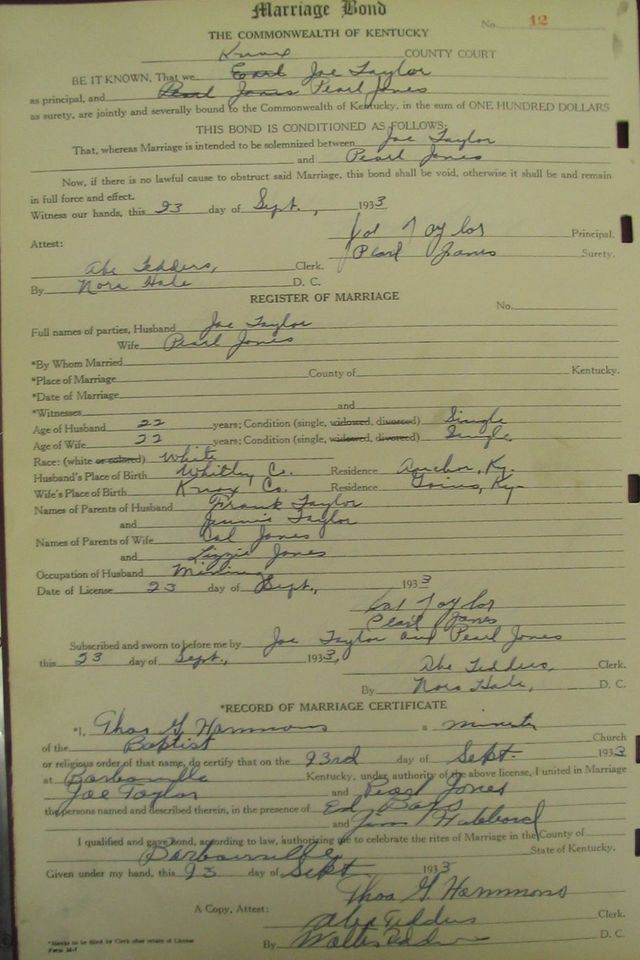 Marriage Bond
No. 12
THE COMMONWEALTH OF KENTUCKY
Knox COUNTY COURT
BE IT KNOWN, That we Earl Joe Taylor
as principal, and Pearl Jones Pearl Jones
as surety, are jointly and severally bound to the Commonwealth of Kentucky, in the sum of ONE HUNDRED DOLLARS
THIS BOND IS CONDITIONED AS FOLLOWS:
That, whereas Marriage is intended to be solemnized between Joe Taylor
and Pearl Jones
Now, if there is no lawful cause to obstruct said Marriage, this bond shall be void, otherwise it shall be and remain
in full force and effect.
Witness our hands, this 23 day of Sept., 1933
Taylor Principal.
Attest: Pearl Jones Surety.
Abe Tedders, Clerk.
By Nora Hale D. C.
REGISTER OF MARRIAGE
No.
Full names of parties, Husband Joe Taylor
Wife Pearl Jones
*By Whom Married
*Place of Marriage County of Kentucky.
*Date of Marriage
*Witnesses and
Age of Husband 22 years; Condition (single, widowed, divorced) Single
Age of Wife 22 years; Condition (single, widowed, divorced) Single
Race: (white or colored) White
Husband's Place of Birth Whitley Co. Residence Anchor, Ky.
Wife's Place of Birth Knox Co. Residence Goins, Ky.
Names of Parents of Husband Frank Taylor
and Jennie Taylor
Names of Parents of Wife Cal Jones
and Lizzie Jones
Occupation of Husband Mining
Date of License 23 day of Sept., 1933
Taylor
Pearl Jones
Subscribed and sworn to before me by Joe Taylor and Pearl Jones
this 23 day of Sept., 1933,
Abe Tedders, Clerk.
By Nora Hale, D. C.
*RECORD OF MARRIAGE CERTIFICATE
*I, Thos G. Hammons a minister
of the Baptist Church
or religious order of that name, do certify that on the 23rd day of Sept. 1933
at Barbourville Kentucky, under authority of the above license, I united in Marriage
Joe Taylor and Pearl Jones
the persons named and described therein, in the presence of Ed
and Jim Hubbard
I qualified and gave bond, according to law, authorizing me to celebrate the rites of Marriage in the County of
Barbourville State of Kentucky.
Given under my hand, this 23 day of Sept 1933
Thos G. Hammons
A Copy, Attest: Abe Tedders Clerk.
By Walter D. C.
*Blanks to be filled by Clerk after return of License